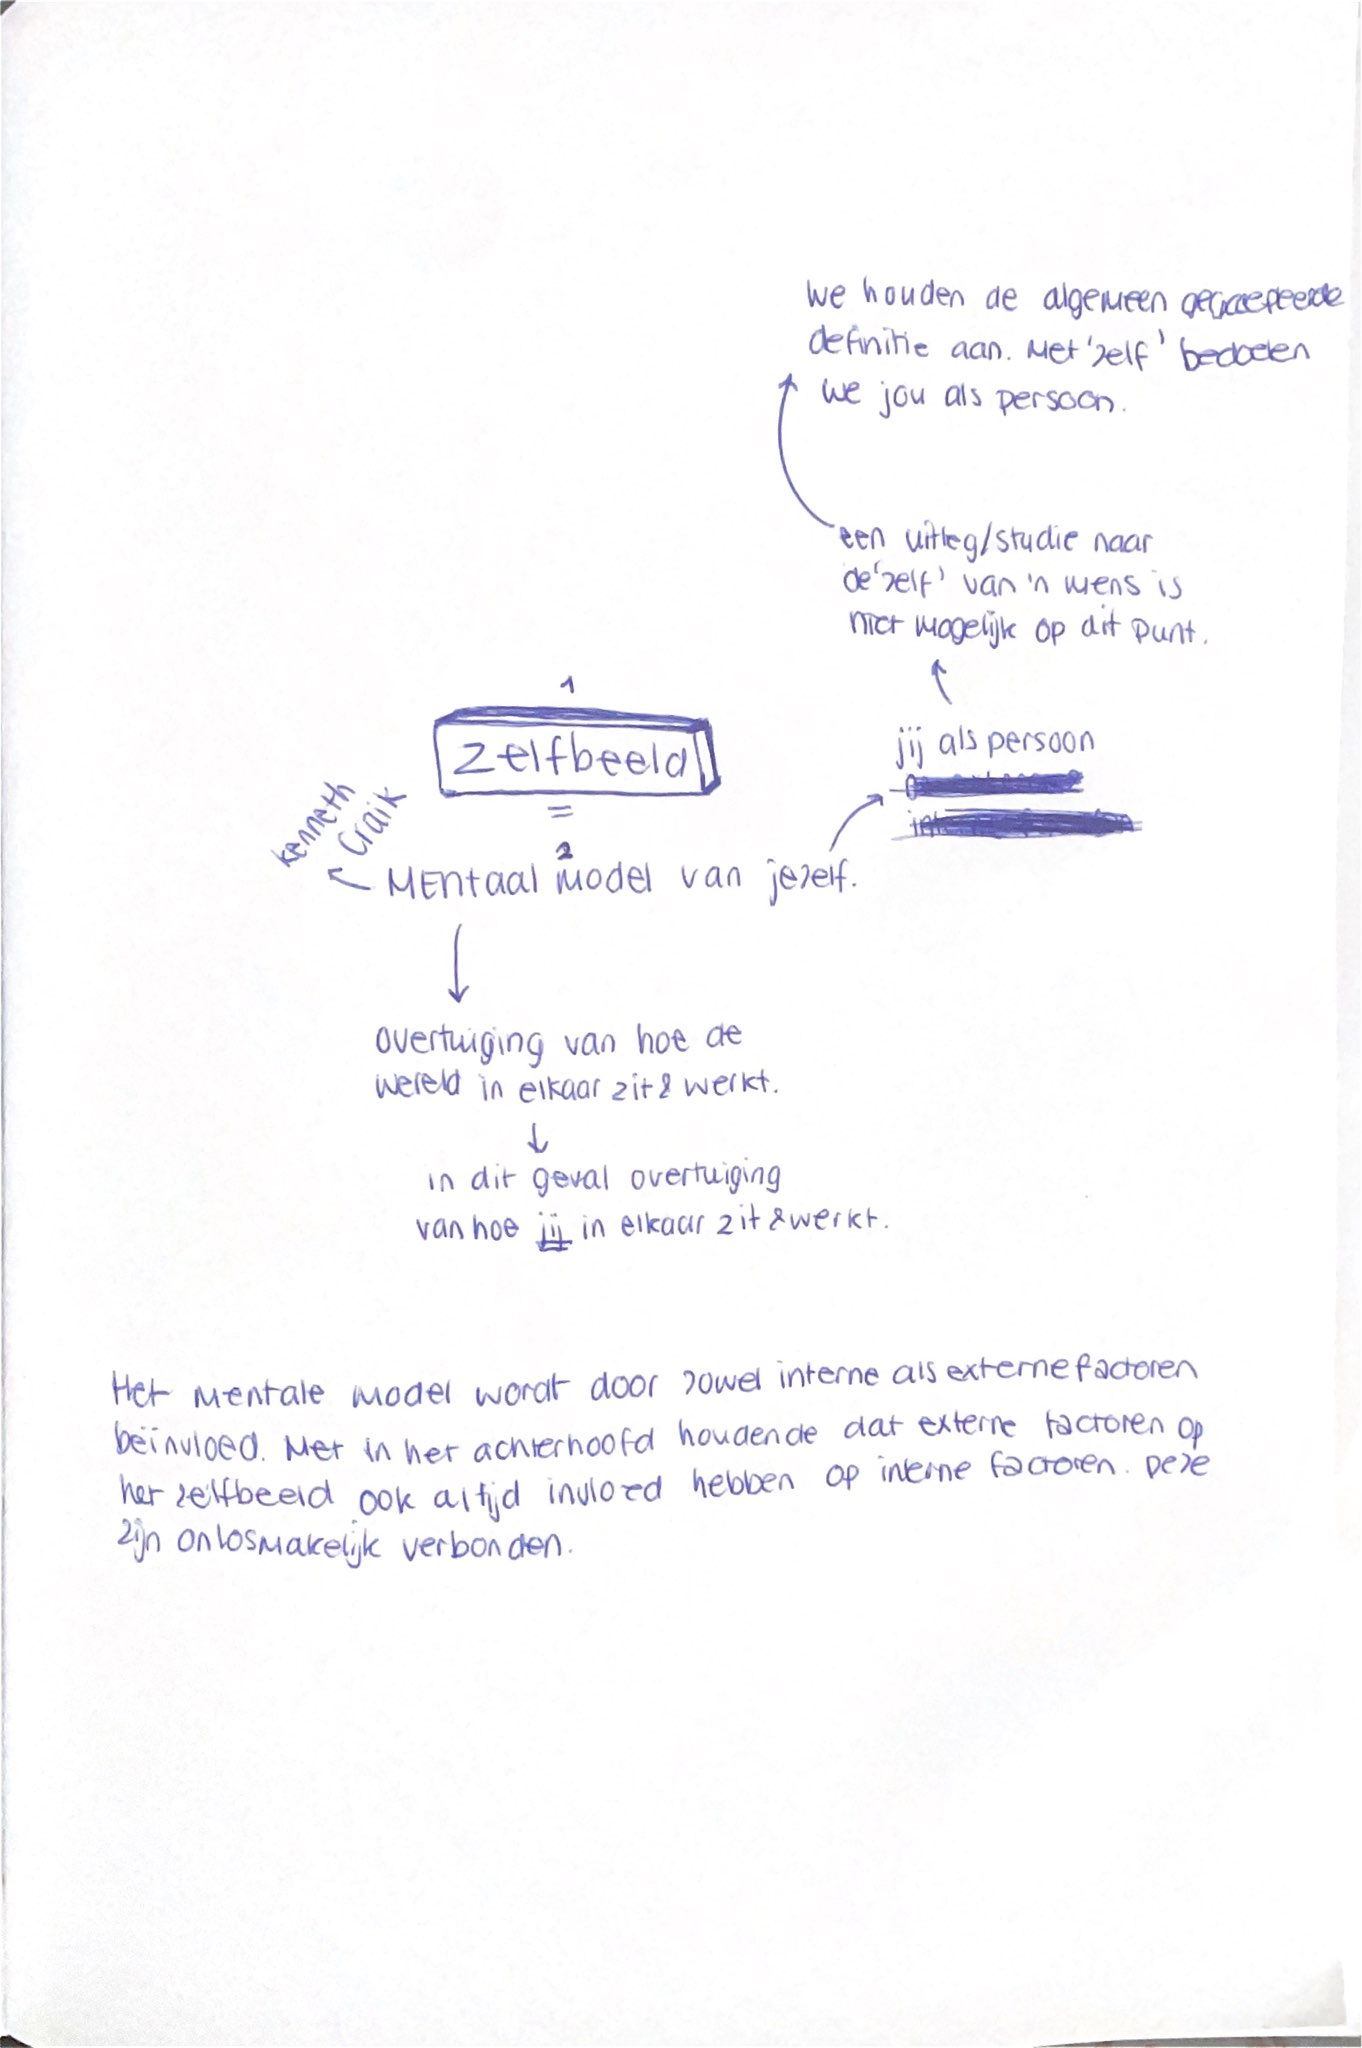 We houden de algemeen geaccepteerde
definitie aan. Met 'zelf' bedoelen
we jou als persoon.
een uitleg/studie naar
de 'zelf' van 'n mens is
niet mogelijk op dit punt.
1
Zelfbeeld
jij als persoon
=
Kenneth
Craik
2
Mentaal model van jezelf.
overtuiging van hoe de
wereld in elkaar zit & werkt.
in dit geval overtuiging
van hoe jij in elkaar zit & werkt.
Het mentale model wordt door zowel interne als externe factoren
beïnvloed. Met in het achterhoofd houdende dat externe factoren op
het zelfbeeld ook altijd invloed hebben op interne factoren. Deze
zijn onlosmakelijk verbonden.